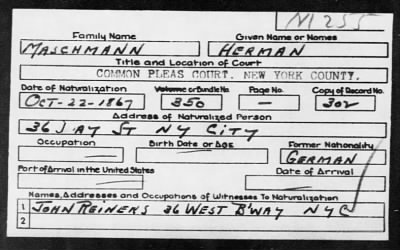 N1255
Family Name Given Name or Names
MASCHMANN HERMAN
Title and Location of Court
COMMON PLEAS COURT. NEW YORK COUNTY.
Date of Naturalization Volume or Bundle No. Page No. Copy of Record No.
OCT-22-1867 350 — 302
Address of Naturalized Person
36 JAY ST NY CITY
Occupation Birth Date or Age Former Nationality
— — GERMAN
Port of Arrival in the United States Date of Arrival
— —
Names, Addresses and Occupations of Witnesses To Naturalization
1 JOHN REINERS 36 WEST B'WAY NYC
2